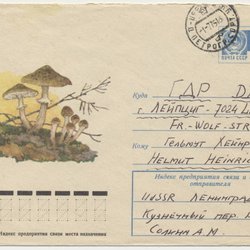 ПОЧТА СССР
Куда ГДР D
г. ЛЕЙПЦИГ-7024
FR.-WOLF-STR
Кому ГЕЛЬМУТ ХЕЙНР
HELMUT HEINRI
Индекс предприятия связи и отправителя
UdSSR ЛЕНИНГРАД
КУЗНЕЧНЫЙ ПЕР.
СОЛИНА А.М
Индекс предприятия связи места назначения